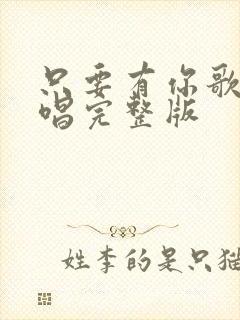 只要有你歌
唱完整版
姓李的是只猫